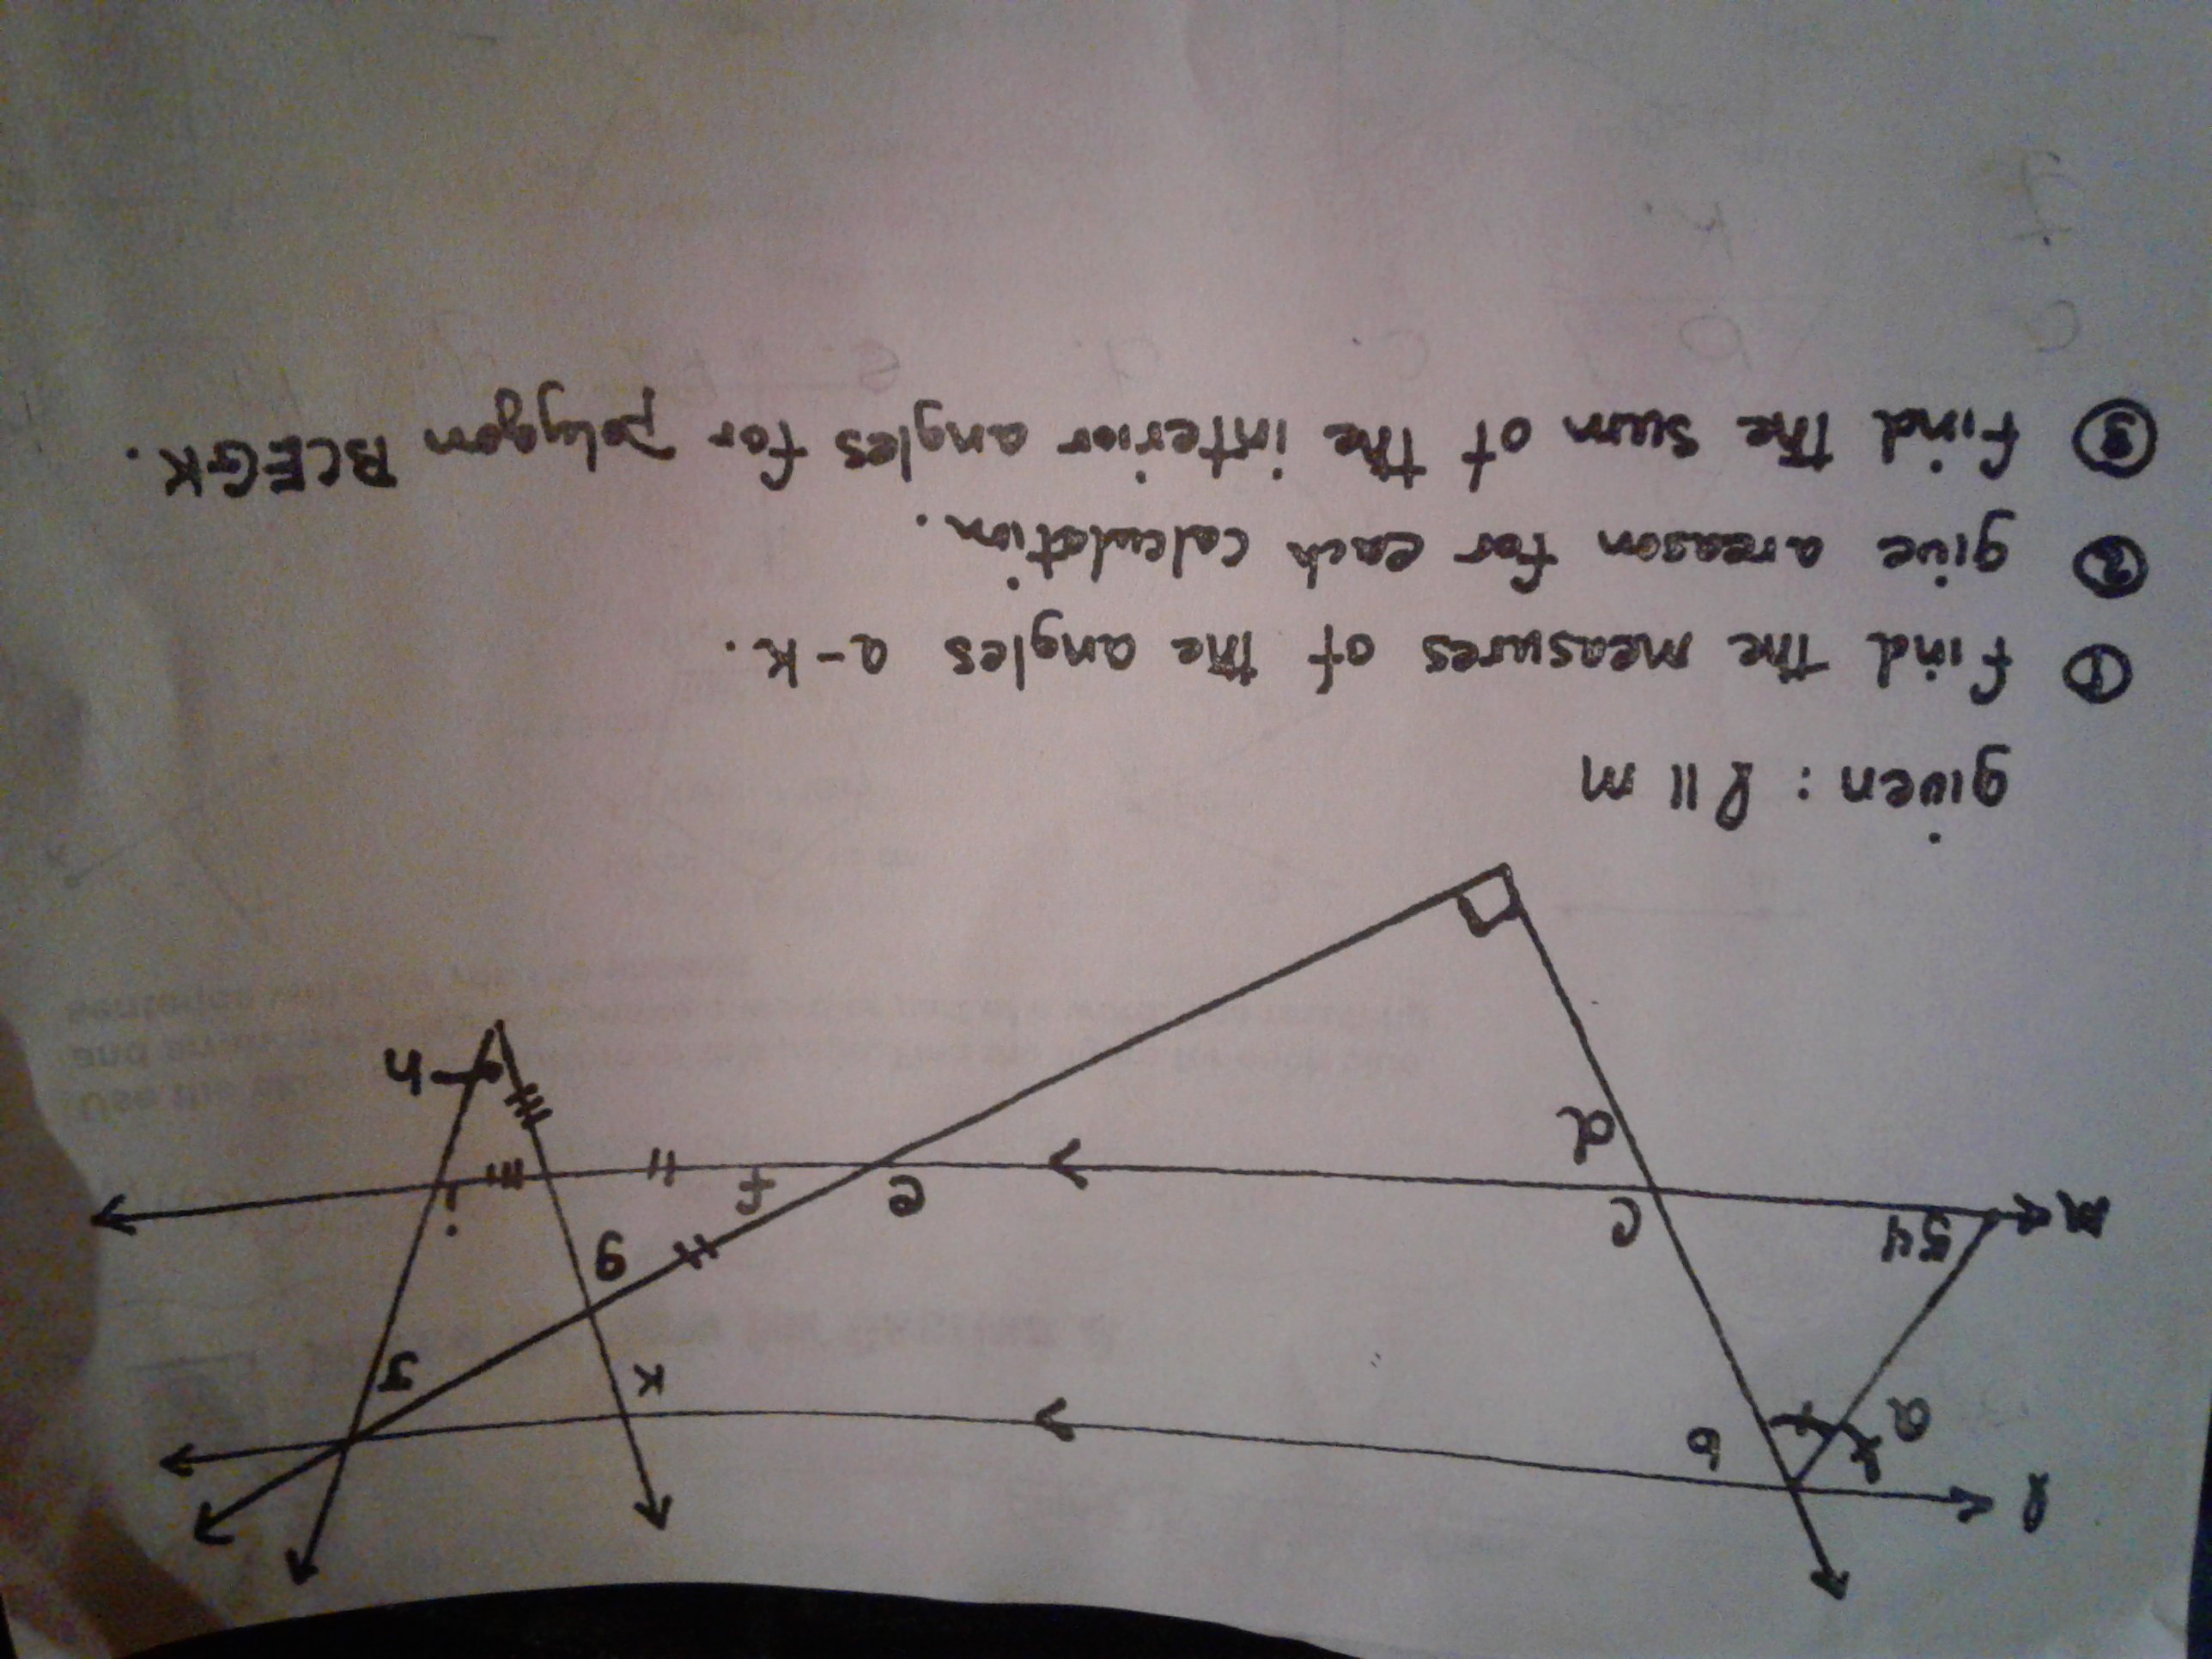 l
a b k j
m 54 c e f g i
d h
given: l || m
① find the measures of the angles a-k.
② give areason for each calculation.
③ find the sum of the interior angles for polygon BCEGK.